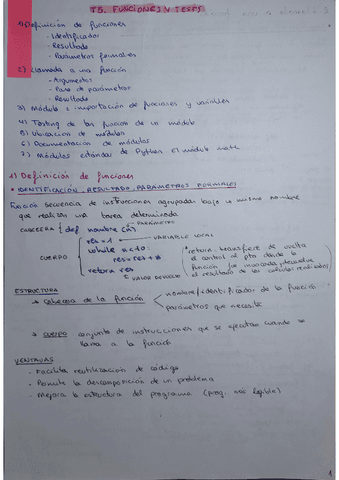 T5. FUNCIONES Y TESTS
1) Definición de funciones
- Identificador
- Resultado
- Parámetros formales
2) Llamada a una función
- Argumentos
- Paso de parámetros
- Resultado
3) Módulos e importación de funciones y variables
4) Testing de las funciones de un módulo
5) Ubicación de módulos
6) Documentación de módulos
7) Módulos estándar de Python. El módulo math
1) Definición de funciones
• IDENTIFICACIÓN, RESULTADO, PARÁMETROS FORMALES
Función: secuencia de instrucciones agrupadas bajo un mismo nombre
que realizan una tarea determinada
PARÁMETROS
CABECERA { def nombre (n):
VARIABLE LOCAL
res = 1
while n < 10:
CUERPO
res = res +
return res
VALOR DEVUELTO
* return: transfiere de vuelta
el control al pto donde la
función fue invocada, devuelve
el resultado de los cálculos realizados
ESTRUCTURA
→ Cabecera de la función
nombre/identificador de la función
parámetros que necesite
→ CUERPO conjunto de instrucciones que se ejecutan cuando se
llama a la función
VENTAJAS
- Facilita reutilización de código
- Permite la descomposición de un problema
- Mejora la estructura del programa (prog. más legible)
1